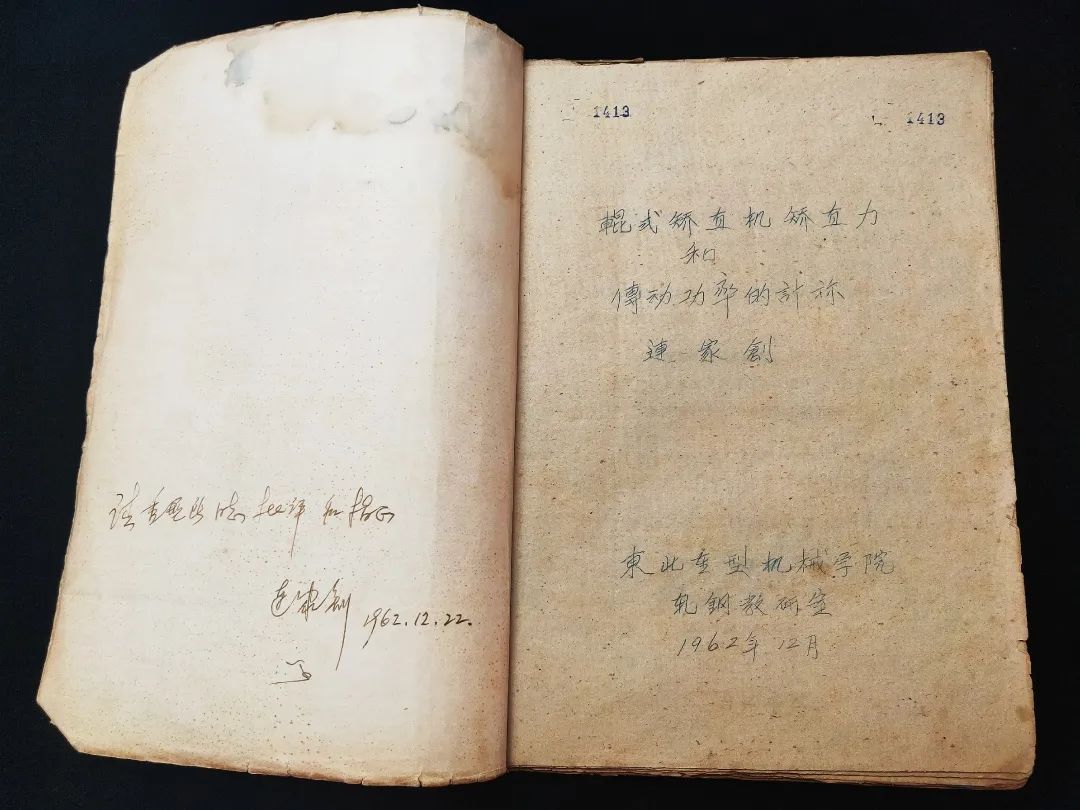 请
批评和指正
连家创 1962.12.22.
1413 1413
辊式矫直机矫直力
和
傳动功率的計祘
連家創
東北重型机械学院
轧鋼教研室
1962年12月